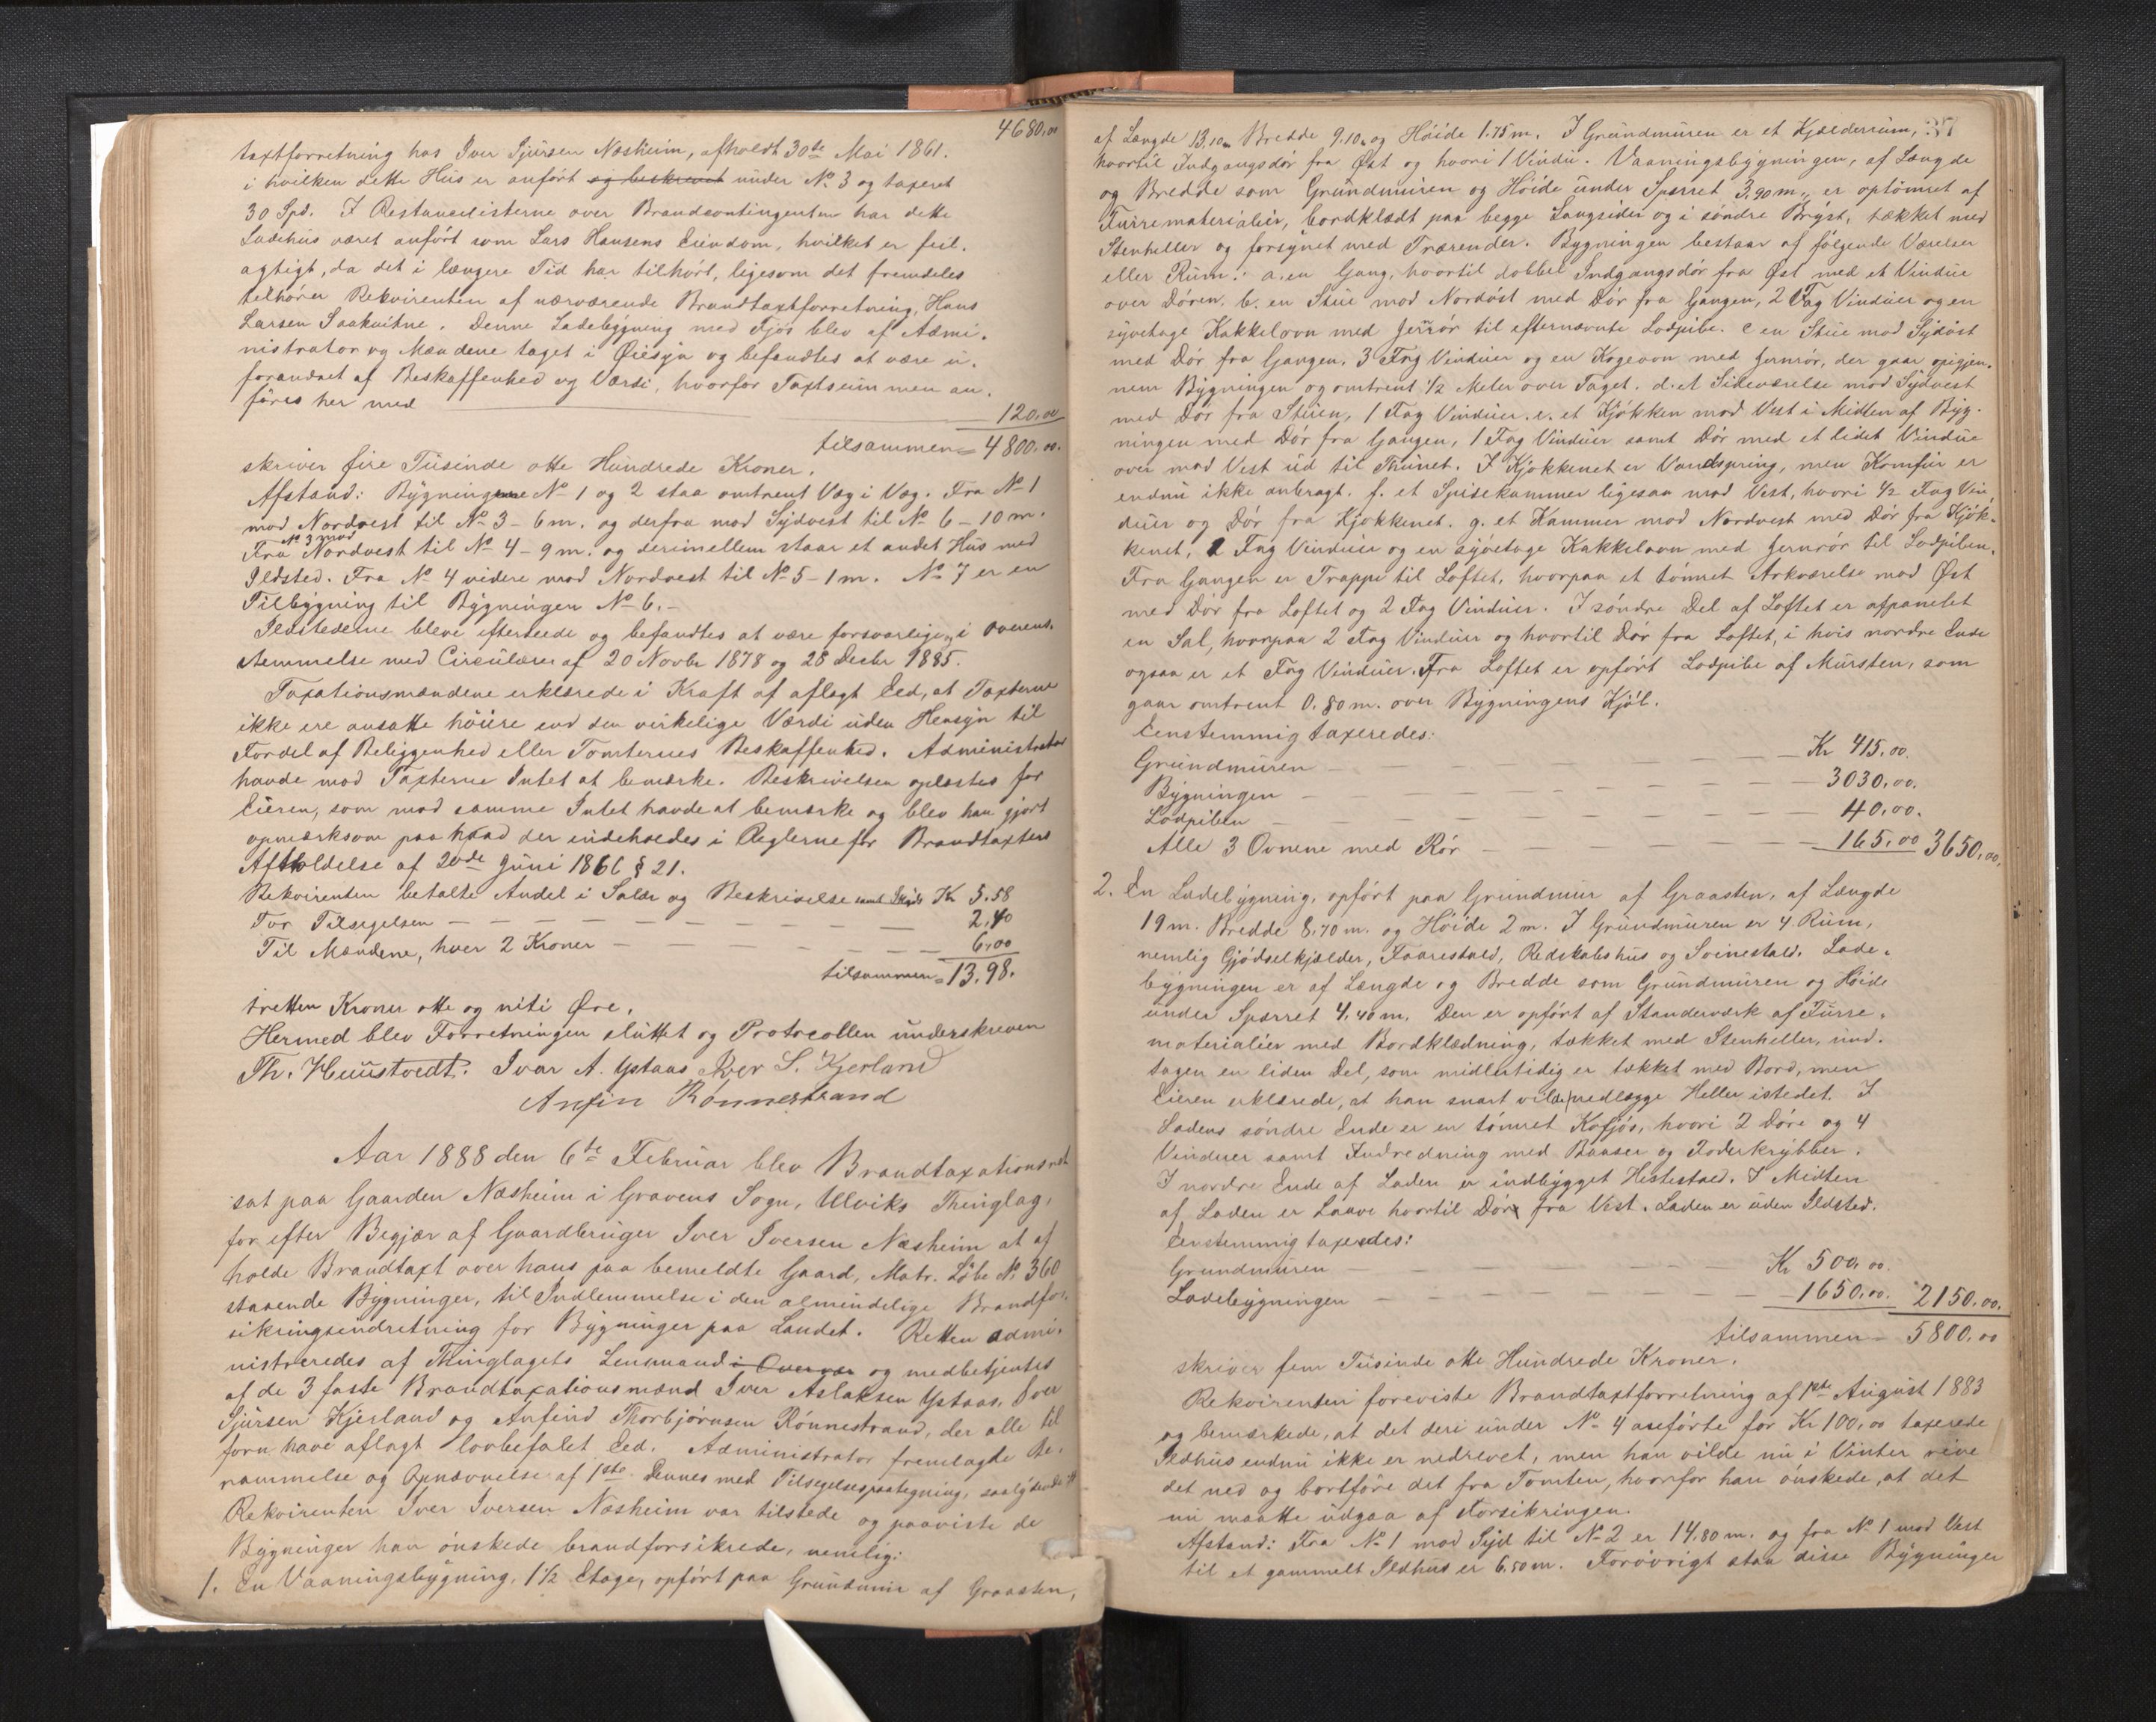 4680,00
taxtforretning hos Iver Sjursen Næsheim, afholdt 30te Mai 1861.
i hvilken dette Hus er anført og beskrevet under No 3 og taxeret
30 Spd. I Restancelisterne over Brandcontingenten har dette
Ladehus været anført som Lars Hansens Eiendom, hvilket er feil-
agtigt, da det i længere Tid har tilhørt, ligesom det fremdeles
tilhører Rekvirenten af nærværende Brandtaxtforretning, Hans
Larsen Saakvitne. Denne Ladebygning med Fjøs blev af Admi-
nistrator og Mændene taget i Øiesyn og befandtes at være u-
forandret af Beskaffenhed og Værdi, hvorfor Taxtsummen an-
føres her med
120,00
tilsammen = 4800,00.
skriver fire Tusinde otte Hundrede Kroner.
Afstand: Bygningerne No 1 og 2 staa omtrent Væg i Væg. Fra No 1
mod Nordvest til No 3 - 6 m. og derfra mod Sydvest til No 6 - 10 m.
No 3 mod
Fra Nordvest til No 4 - 9 m. og derimellem staar et andet Hus med
Ildsted. Fra No 4 videre mod Nordvest til No 5 - 1 m. No 7 er en
Tilbygning til Bygningen No 6. -
Ildstederne bleve efterseede og befandtes at være forsvarlige, i Overens-
stemmelse med Circulærer af 20 Novbr 1878 og 28 Decbr 1885.
Taxationsmændene erklærede i Kraft af aflagt Eed, at Taxterne
ikke ere ansatte høiere end den virkelige Værdi uden Hensyn til
Fordel af Beliggenhed eller Tomternes Beskaffenhed. Administrator
havde mod Taxterne Intet at bemærke. Beskrivelsen oplæstes for
Eieren, som mod samme Intet havde at bemærke og blev han gjort
opmærksom paa hvad der indeholdes i Reglerne for Brandtaxters
Afholdelse af 20de Juni 1861 § 21.
Rekvirenten betalte Andel i Salær og Beskrivelse samt Skyds Kr 5.58
For Tilsigelsen — 2.40
Til Mændene, hver 2 Kroner — 6.00
tilsammen = 13.98.
tretten Kroner otte og niti Øre.
Hermed blev Forretningen sluttet og Protocollen underskreven
Th. Huustvedt. Ivar A. Ystaas Iver S. Kjerland
Anfin Rønnestrand
Aar 1888 den 6te Februar blev Brandtaxationsret
sat paa Gaarden Næsheim i Gravens Sogn, Ulviks Thinglag,
for efter Begjær af Gaardbruger Iver Iversen Næsheim at af
holde Brandtaxt over hans paa bemeldte Gaard, Matr. Løbe No 360
staaende Bygninger, til Indlemmelse i den almindelige Brandfor-
sikringsindretning for Bygninger paa Landet. Retten admi-
nistreredes af Thinglagets Lensmand i Overvær og medbetjentes
af de 3 faste Brandtaxationsmænd Iver Aslaksen Ystaas, Iver
Sjursen Kjerland og Anfind Thorbjørnsen Rønnestrand, der alle til
forn have aflagt lovbefalet Eed. Administrator fremlagde Be-
rammelse og Opnævnelse af 1ste Dennes med Tilsigelsespaategning, saalydende
Rekvirenten Iver Iversen Næsheim var tilstede og paaviste de
Bygninger han ønskede brandforsikrede, nemlig:
1. En Vaaningsbygning, 1½ Etage, opført paa Grundmur af Graasten,
af Længde 13,10m Bredde 9,10m og Høide 1.75 m. I Grundmuren er et Kjælderrum,
hvortil Indgangsdør fra Øst og hvori 1 Vindu. Vaaningsbygningen, af Længde
og Bredde som Grundmuren og Høide under Sparret 3,90 m., er optømret af
Furrematerialier, bordklædt paa begge Langsider og i søndre Bryst, tækket med
Stenheller og forsynet med Trærender. Bygningen bestaar af følgende Værelser
eller Rum: a. en Gang, hvortil dobbel Indgangsdør fra Øst med et Vindue
over Døren. b. en Stue mod Nordøst med Dør fra Gangen, 2 Fag Vinduer og en
syvetage Kakkelovn med Jernrør til efternævnte Lodpibe. c en Stue mod Sydøst
med Dør fra Gangen, 3 Fag Vinduer og en Kogeovn med Jernrør, der gaar opigjen-
nem Bygningen og omtrent ½ Meter over Taget. d. et Sideværelse mod Sydvest
med Dør fra Stuen, 1 Fag Vinduer. e. et Kjøkken mod Vest i Midten af Byg-
ningen med Dør fra Gangen, 1 Fag Vinduer samt Dør med et lidet Vindue
over mod Vest ud til Thunet. I Kjøkkenet er Vandspring, men Komfur er
endnu ikke anbragt. f. et Spisekammer ligesaa mod Vest, hvori ½ Fag Vin-
duer og Dør fra Kjøkkenet. g. et Kammer mod Nordvest med Dør fra Kjøk-
kenet, 1 Fag Vinduer og en syvetage Kakkelovn med Jernrør til Lodpiben.
Fra Gangen er Trappe til Loftet, hvorpaa et tømret Arkværelse mod Øst
med Dør fra Loftet og 2 Fag Vinduer. I søndre Del af Loftet er afpanelet
en Sal, hvorpaa 2 Fag Vinduer og hvortil Dør fra Loftet, i hvis nordre Ende
ogsaa er et Fag Vinduer. Fra Loftet er opført Lodpibe af Mursten, som
gaar omtrent 0.80 m. over Bygningens Kjøl.
Eenstemmig taxeredes:
Grundmuren — Kr 415,00.
Bygningen — 3030,00.
Lodpiben — 40,00.
Alle 3 Ovnene med Rør — 165,00 3650,00.
2. En Ladebygning, opført paa Grundmur af Graasten, af Længde
19 m. Bredde 8.70 m. og Høide 2 m. I Grundmuren er 4 Rum,
nemlig Gjødselkjælder, Faarestald, Redskabshus og Svinestald. Lade-
bygningen er af Længde og Bredde som Grundmuren og Høide
under Sparret 4,40 m. Den er opført af Standerværk af Furre-
materialier med Bordklædning, tækket med Stenheller, und-
tagen en liden Del, som midlertidig er tækket med Bord, men
Eieren erklærede, at han snart vilde nedlægge Heller istedet. I
Ladens søndre Ende er en tømret Kofjøs, hvori 2 Døre og 4
Vinduer samt Indredning med Baaser og Foderkrybber.
I nordre Ende af Laden er indbygget Hestestald. I Midten
af Laden er Laave hvortil Dør fra Vest. Laden er uden Ildsted.
Eenstemmig taxeredes:
Grundmuren — Kr 500,00.
Ladebygningen — 1650,00. 2150,00.
tilsammen = 5800,00
skriver fem Tusinde otte Hundrede Kroner.
Rekvirenten foreviste Brandtaxtforretning af 1ste August 1883
og bemærkede, at det deri under No 4 anførte for Kr 100,00 taxerede
Ildhus endnu ikke er nedrevet, men han vilde nu i Vinter rive
det ned og bortføre det fra Tomten, hvorfor han ønskede, at det
nu maatte udgaa af Forsikringen.
Afstand: Fra No 1 mod Syd til No 2 er 14,80 m. og fra No 1 mod Vest
til et gammelt Ildhus er 6,50 m. Forøvrigt staa disse Bygninger